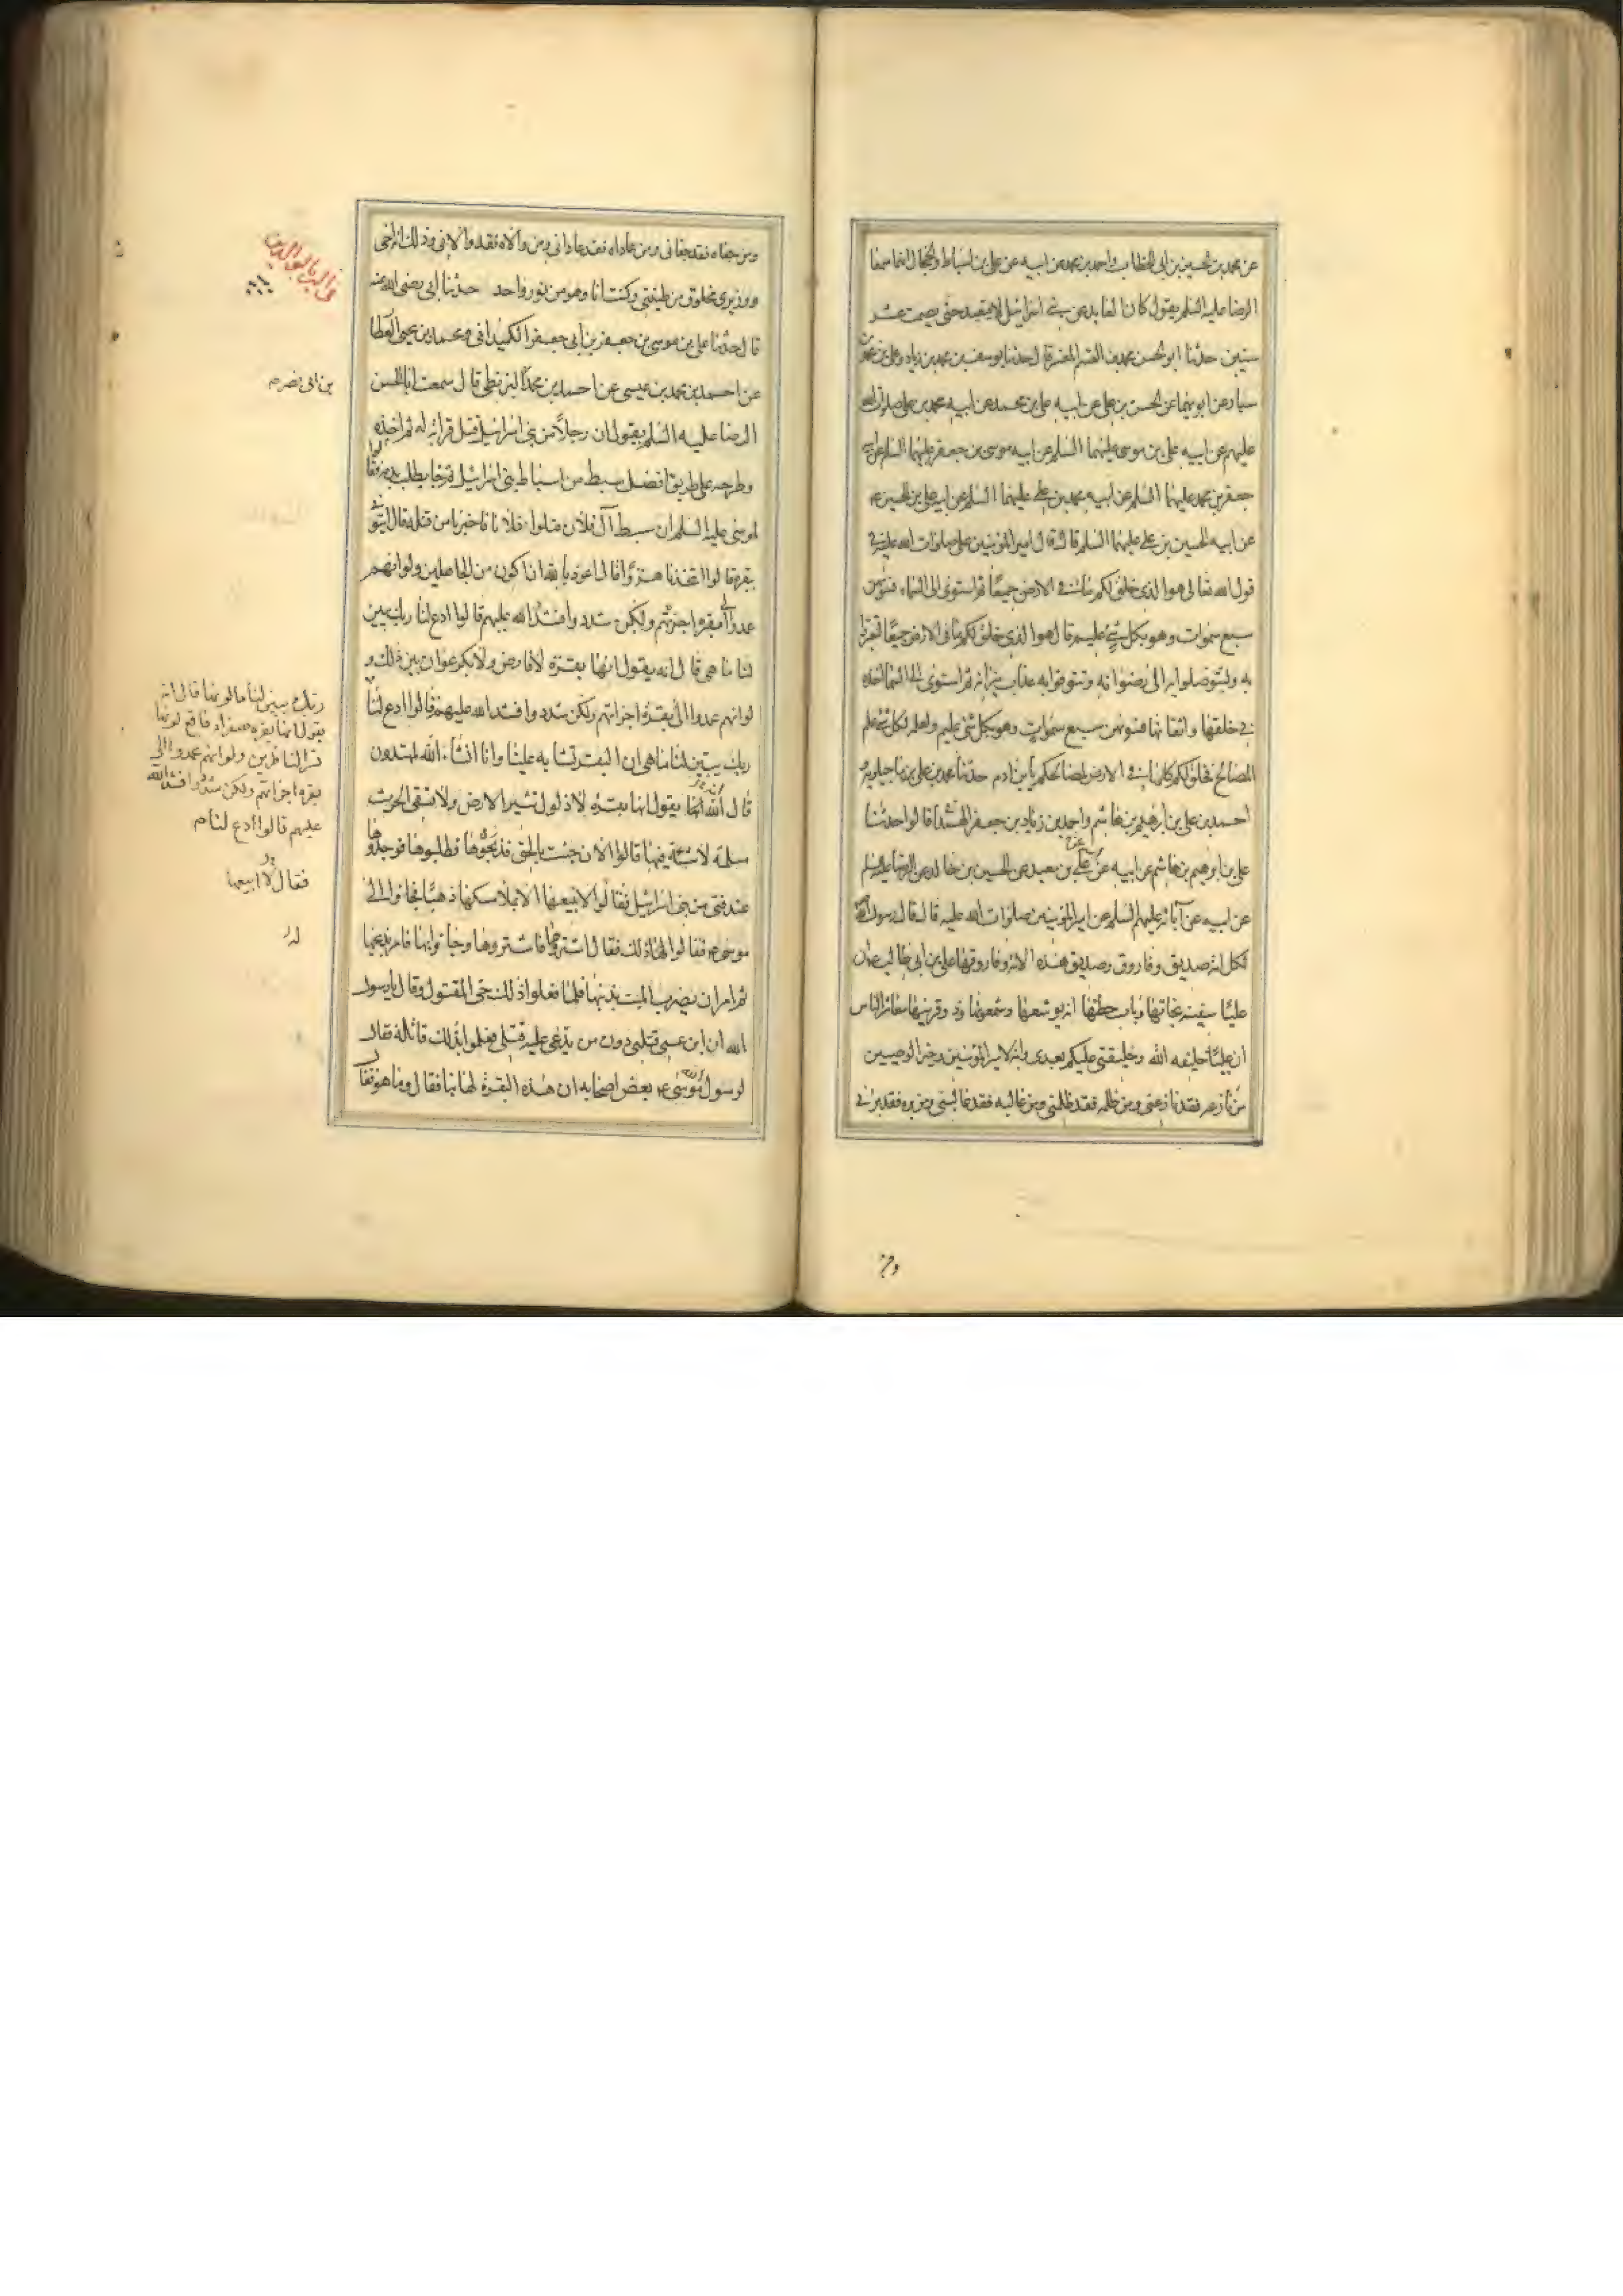 عن محمد بن الحسين بن ابى الخطاب واحمد بن محمد عن ابيه عن على بن اسباط والحجال انهما سمعا
الرضا عليه السلم يقول كان العابد من بنى اسرائيل لا يتعبد حتى يصمت عشر
سنين حدثنا ابو الحسن محمد بن القسم المفسر قال حدثنا يوسف بن محمد بن زياد وعلى بن محمد بن
سيار عن ابويهما عن الحسن بن على عن ابيه على بن محمد عن ابيه محمد بن على صلوات الله
عليهم عن ابيه على بن موسى عليهما السلم عن ابيه موسى بن جعفر عليهما السلم عن ابيه
جعفر بن محمد عليهما السلم عن ابيه محمد بن على عليهما السلم عن ابيه على بن الحسين ع
عن ابيه الحسين بن على عليهما السلم قال قال امير المؤمنين على صلوات الله عليه فى
قول الله تعالى هو الذى خلق لكم ما فى الارض جميعا ثم استوى الى السماء فسوّيهن
سبع سموات وهو بكل شئ عليم قال هو الذى خلق لكم ما فى الارض جميعا لتعتبروا
به ولتتوصلوا به الى رضوانه وتتوقوا به عذاب نيرانه ثم استوى الى السماء اخذ
فى خلقها واتقانها فسوّيهن سبع سموات وهو بكل شئ عليم ولعلمه بكل شئ علم
المصالح فخلق لكم كلما فى الارض لمصالحكم يا بنى ادم حدثنا محمد بن على ماجيلويه و
احمد بن على بن ابرهيم بن هاشم واحمد بن زياد بن جعفر الهمدانى قالوا حدثنا
على بن ابرهيم بن هاشم عن ابيه عن على بن معبد عن الحسين بن خالد عن الرضا عليه السلم
عن ابيه عن آبائه عليهم السلم عن امير المؤمنين صلوات الله عليه قال قال رسول الله
لكل امة صديق وفاروق وصديق هذه الامة وفاروقها على بن ابى طالب ع ان
عليّا سفينة نجاتها وباب حطتها انه يوشعها وشمعونها وذو قرنيها معاشر الناس
ان عليّا خليفه الله وخليفتى عليكم بعدى وانه لامير المؤمنين وخير الوصيين
من نازعه فقد نازعنى ومن ظلمه فقد ظلمنى ومن غالبه فقد غالبنى ومن بره فقد برنى
ومن
ومن جفاه فقد جفانى ومن عاداه فقد عادانى ومن والاه فقد والانى وذلك انه اخى
ووزيرى مخلوق من طينتى وكنت انا وهو من نور واحد حدثنا ابى رضى الله عنه
قال حدثنا على بن موسى بن جعفر بن ابى جعفر الكميدانى ومحمد بن يحيى العطار
عن احمد بن محمد بن عيسى عن احمد بن محمد البزنطى قال سمعت ابا الحسن
الرضا عليه السلم يقول ان رجلا من بنى اسرائيل قتل قرابة له ثم اخذه
وطرحه على طريق افضل سبط من اسباط بنى اسرائيل ثم جا يطلب بدمه فقالوا
لموسى عليه السلم ان سبط آل فلان قتلوا فلانا فاخبرنا من قتله قال ايتونى
ببقرة قالوا اتتخذنا هزوًا قال اعوذ بالله ان اكون من الجاهلين ولو انهم
عمدوا الى بقرة اجزئتهم ولكن شدد وافشدد الله عليهم قالوا ادع لنا ربك يبين
لنا ما هى قال انه يقول انها بقرة لا فارض ولا بكر عوان بين ذلك و
لو انهم عمدوا الى بقرة اجزاتهم ولكن شدد وافشدد الله عليهم قالوا ادع لنا
ربك يبين لنا ما هى ان البقر تشابه علينا وانا انشاء الله لمهتدون
قال انه يقول انها بقرة لا ذلول تثير الارض ولا تسقى الحرث
مسلمة لا شية فيها قالوا الآن جئت بالحق فذبحوها فطلبوها فوجدوها
عند فتى من بنى اسرائيل فقالوا لا نبيعها الا بملأ مسكها ذهبًا فجاؤا الى
موسى ع فقالوا له ذلك فقال اشتروها فاشتروها وجاؤا بها فامر بذبحها
ثم امر ان يضرب الميت بذنبها فلما فعلوا ذلك حى المقتول وقال يا رسول
الله ان ابن عمى قتلنى دون من يدّعى عليه قتلى فعلموا بذلك قاتله فقال
لرسول الله موسى ع بعض اصحابه ان هذه البقرة لها نبا فقال وما هو فقال
فى البر بالوالدين
بن ابى نصر م
ربك يبين لنا ما لونها قال انه
يقول انها بقرة صفراء فاقع لونها
تسر الناظرين ولو انهم عمدوا الى
بقرة اجزاتهم ولكن شددوا فشدد الله
عليهم قالوا ادع لنا م
فقال لا ابيعها
له